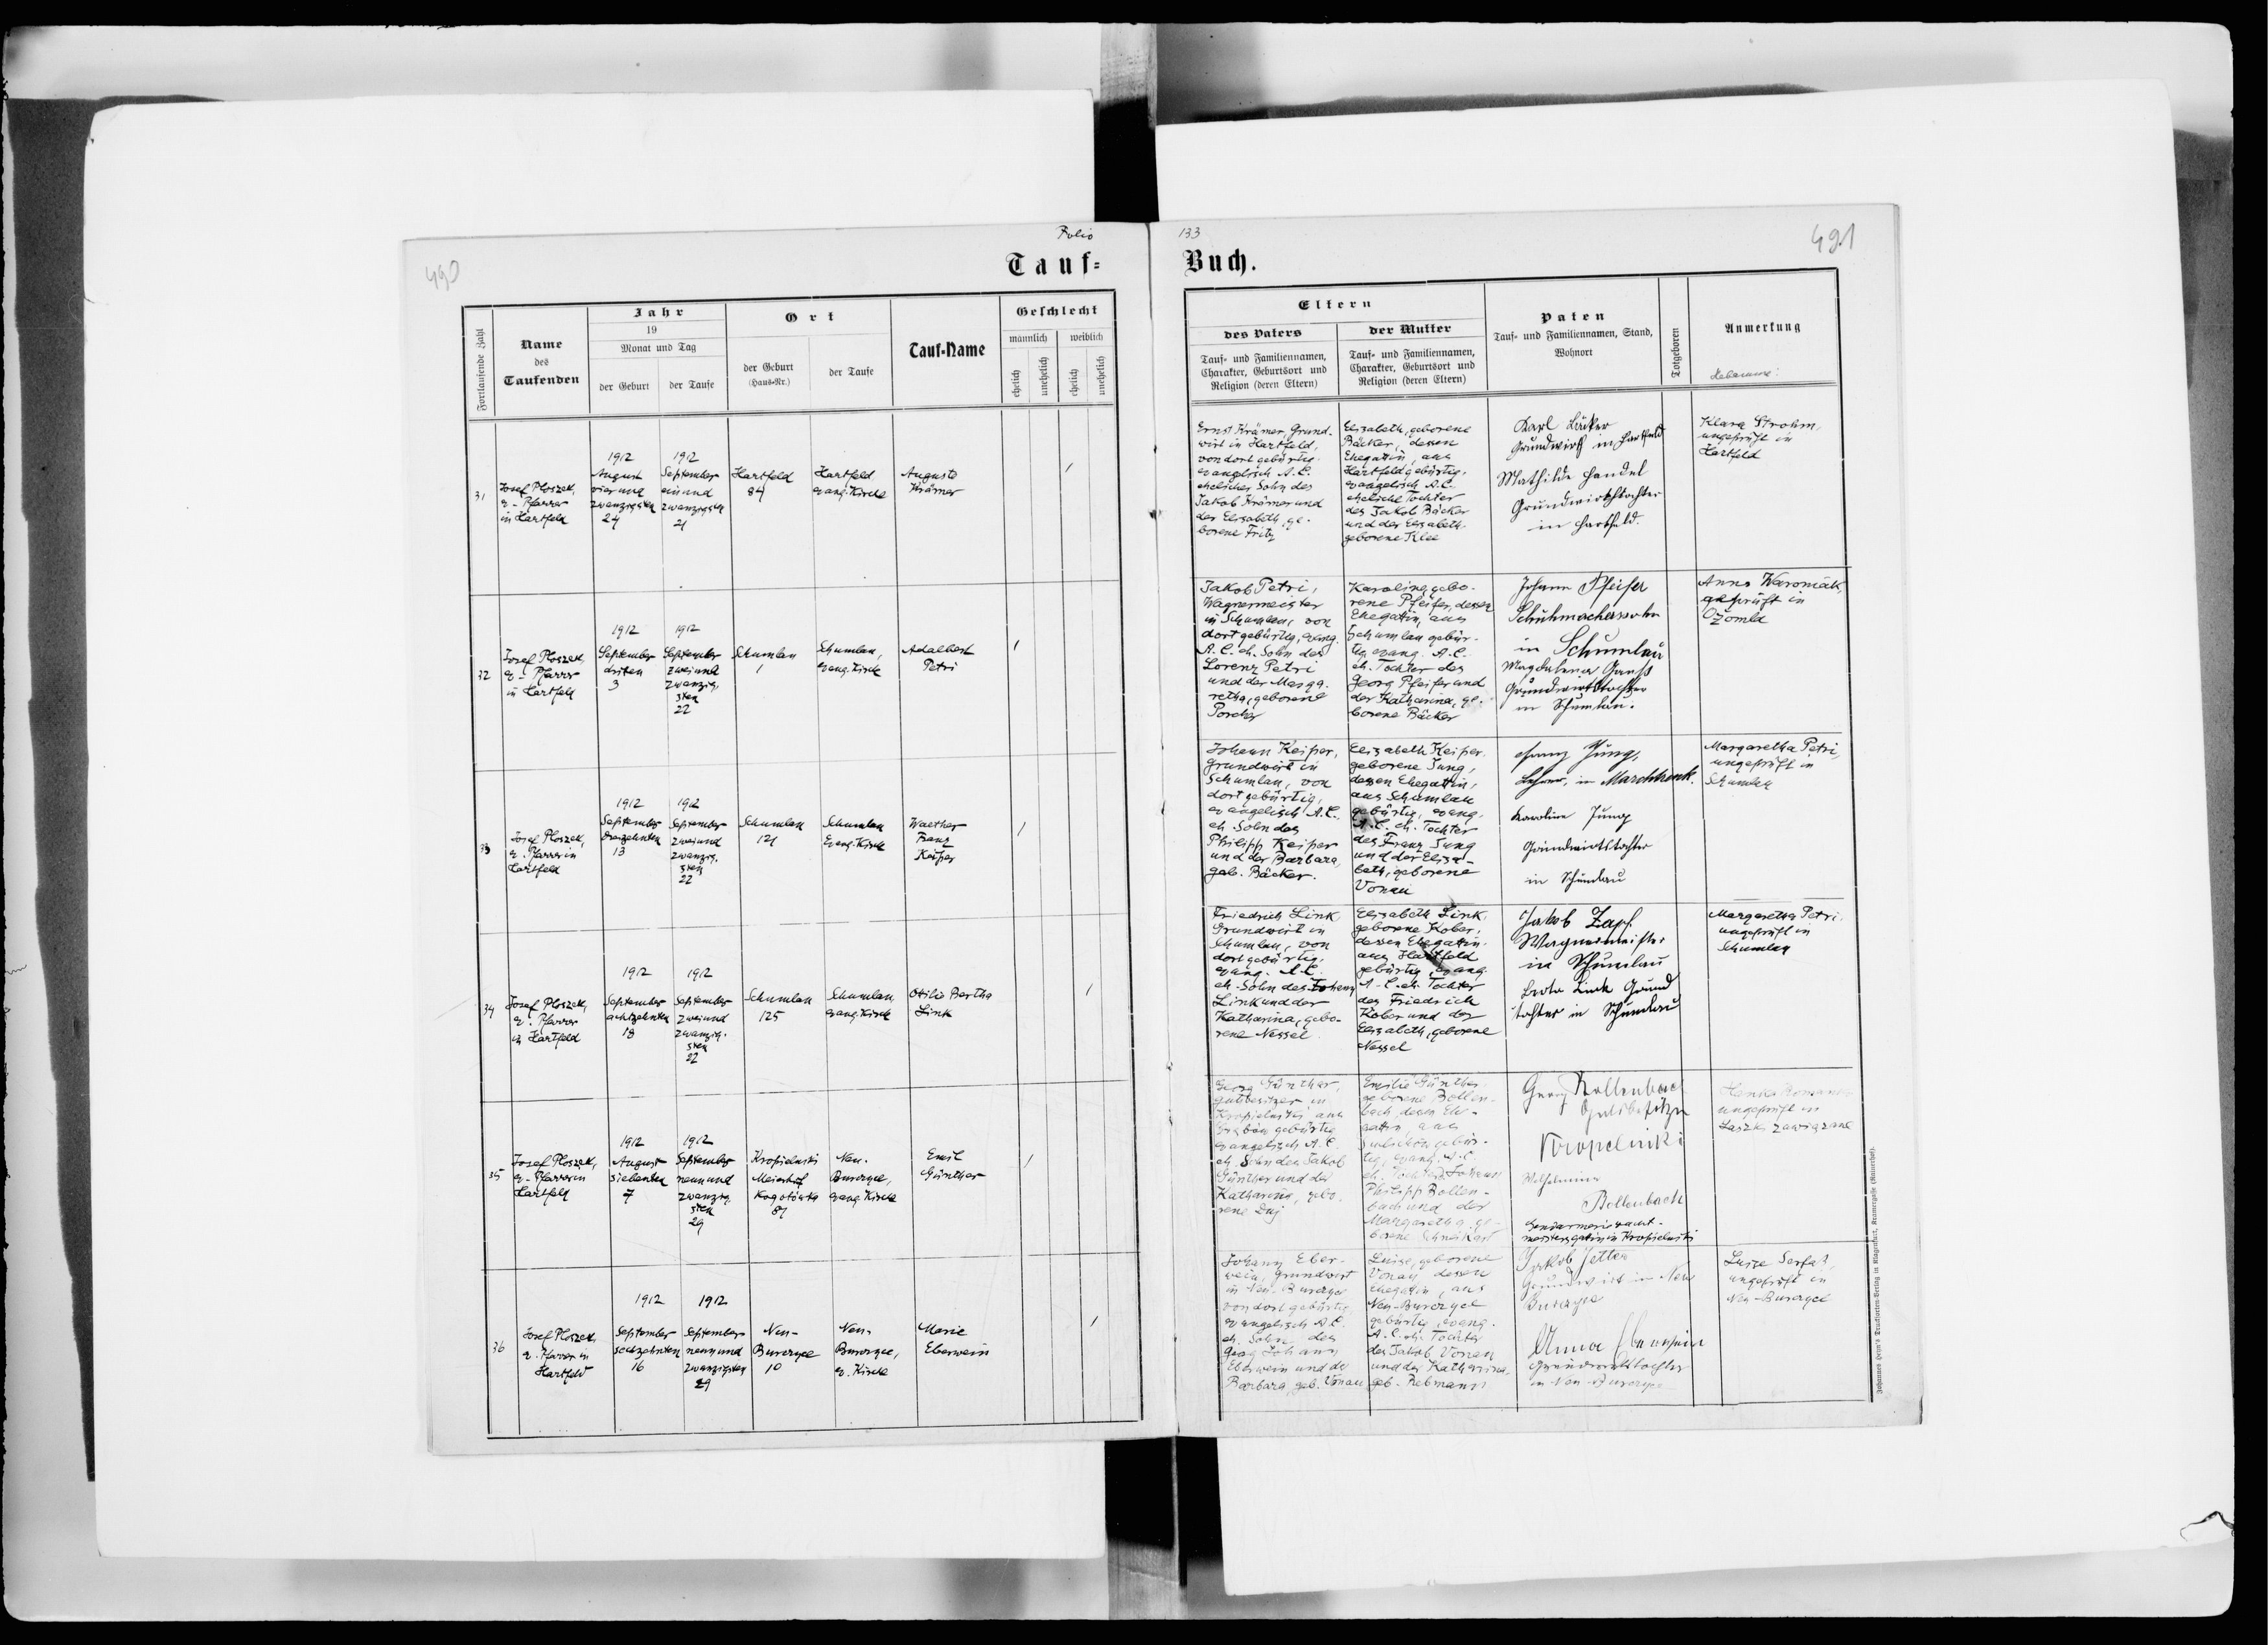 Folio
133
490
491
Tauf=
Buch.
Fortlaufende Zahl
Name
des
Taufenden
Jahr
19
Monat und Tag
der Geburt
der Taufe
Ort
der Geburt
(Haus=Nr.)
der Taufe
Tauf=Name
Geschlecht
männlich
weiblich
ehelich
unehelich
ehelich
unehelich
Eltern
des Vaters
Tauf= und Familiennamen,
Charakter, Geburtsort und
Religion (deren Eltern)
der Mutter
Tauf= und Familiennamen,
Charakter, Geburtsort und
Religion (deren Eltern)
Paten
Tauf= und Familiennamen, Stand,
Wohnort
Totgeboren
Anmerkung
Hebamme:
31
Josef Ploszek,
ev. Pfarrer
in Hartfeld
1912
August
vierund
zwanzigsten
24
1912
September
einund
zwanzigsten
21
Hartfeld
84
Hartfeld
evang. Kirche
Auguste
Krämer
/
Ernst Krämer, Grund-
wirt in Hartfeld,
von dort gebürtig,
evangelisch A.C.
ehelicher Sohn des
Jakob Krämer und
der Elisabeth, ge-
borene Fritz
Elisabeth, geborene
Bäcker, dessen
Ehegattin, aus
Hartfeld gebürtig,
evangelisch A.C.
eheliche Tochter
des Jakob Bäcker
und der Elisabeth
geborene Klee
Karl Bäcker
Grundwirth in Hartfeld
Mathilde Handel
Grundwirthstochter
in Hartfeld.
Klara Strohm,
ungeprüft in
Hartfeld
32
Josef Ploszek,
ev. Pfarrer
in Hartfeld
1912
September
dritten
3
1912
September
zweiund
zwanzig-
sten
22
Schumlau
1
Schumlau,
evang. Kirche
Adalbert
Petri
/
Jakob Petri,
Wagnermeister
in Schumlau, von
dort gebürtig, evang.
A.C. eh. Sohn des
Lorenz Petri
und der Marga-
retha, geborene
Porcher
Karoline gebo-
rene Pfeifer, dessen
Ehegattin, aus
Schumlau gebür-
tig, evang. A.C.
eh. Tochter des
Georg Pfeifer und
der Katharina, ge-
borene Bäcker
Johann Pfeifer
Schuhmacherssohn
in Schumlau
Magdalena
Grundwirtstochter
in Schumlau.
Anna Waromak,
geprüft in
Ozomla
33
Josef Ploszek,
ev. Pfarrer in
Hartfeld
1912
September
dreizehnten
13
1912
September
zweiund
zwanzig-
sten
22
Schumlau
121
Schumlau
Evang. Kirche
Walther
Franz
Keiper
/
Johann Keiper,
Grundwirt in
Schumlau, von
dort gebürtig,
evangelisch A.C.
eh. Sohn des
Philipp Keiper
und der Barbara,
geb. Bäcker.
Elisabeth Keiper
geborene Jung,
dessen Ehegattin,
aus Schumlau
gebürtig, evang.
A.C. eh. Tochter
des Franz Jung
und der Elisa-
beth, geborene
Vonau
Franz Jung,
Lehrer, in
Karoline Jung
Grundwirtstochter
in Schumlau
Margaretha Petri,
ungeprüft in
Schumlau
34
Josef Ploszek,
ev. Pfarrer
in Hartfeld
1912
September
achtzehnten
18
1912
September
zweiund
zwanzig-
sten
22
Schumlau
125
Schumlau
evang. Kirche
Otilie Bertha
Link
/
Friedrich Link,
Grundwirt in
Schumlau, von
dort gebürtig,
evang. A.C.
eh. Sohn des Johann
Link und der
Katharina, gebo-
rene Nessel
Elisabeth Link,
geborene Kober,
dessen Ehegattin,
aus Hartfeld
gebürtig, evang.
A.C. eh. Tochter
des Friedrich
Kober und der
Elisabeth, geborene
Nessel
Jakob Zapf
Wagnermeister
in Schumlau
Link Grund
tochter in Schumlau
Margaretha Petri,
ungeprüft in
Schumlau
35
Josef Ploszek,
ev. Pfarrer in
Hartfeld
1912
August
siebenten
7
1912
September
neunund
zwanzig-
sten
29
Kropielniki
Meierhof
81
Neu-
Burczyce,
evang. Kirche
Emil
Günther
/
Georg Günther,
Gutsbesitzer in
Kropielniki aus
gebürtig
evangelisch A.C.
eh. Sohn des Jakob
Günther und der
Katharina, gebo-
rene
Emilie Günther,
geborene Bollen-
bach, dessen Ehe-
gattin, aus
gebür-
tig, evang. A.C.
eh. Tochter d. Johann
Philipp Bollen-
bach und der
Margaretha, ge-
borene
Georg Bollenbach
Gutsbesitzer
Kropielniki
Wilhelmine
Bollenbach
Gendarmeriewacht-
meistersgattin in Kropielniki
ungeprüft in
Laszki zawiązane
36
Josef Ploszek,
ev. Pfarrer in
Hartfeld
1912
September
sechzehnten
16
1912
September
neunund
zwanzigsten
29
Neu-
Burczyce
10
Neu-
Burczyce,
ev. Kirche
Marie
Eberwein
/
Johann Eber-
wein, Grundwirt
in Neu-Burczyce
von dort gebürtig,
evangelisch A.C.
eh. Sohn des
Georg Johann
Eberwein und der
Barbara, geb. Vonau
Luise, geborene
Vonau dessen
Ehegattin, aus
Neu-Burczyce
gebürtig, evang.
A.C. eh. Tochter
des Jakob Vonau
und der Katharina,
geb. Rebmann
Jakob Jetter
Grundwirt in Neu
Burczyce
Anna Eberwein
Grundwirtstochter
in Neu-Burczyce
ungeprüft in
Neu-Burczyce